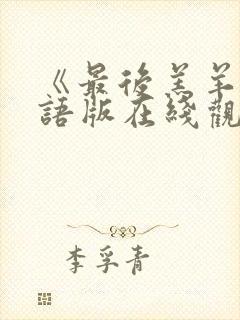 《最後羔羊
語版在綫觀
李孚青